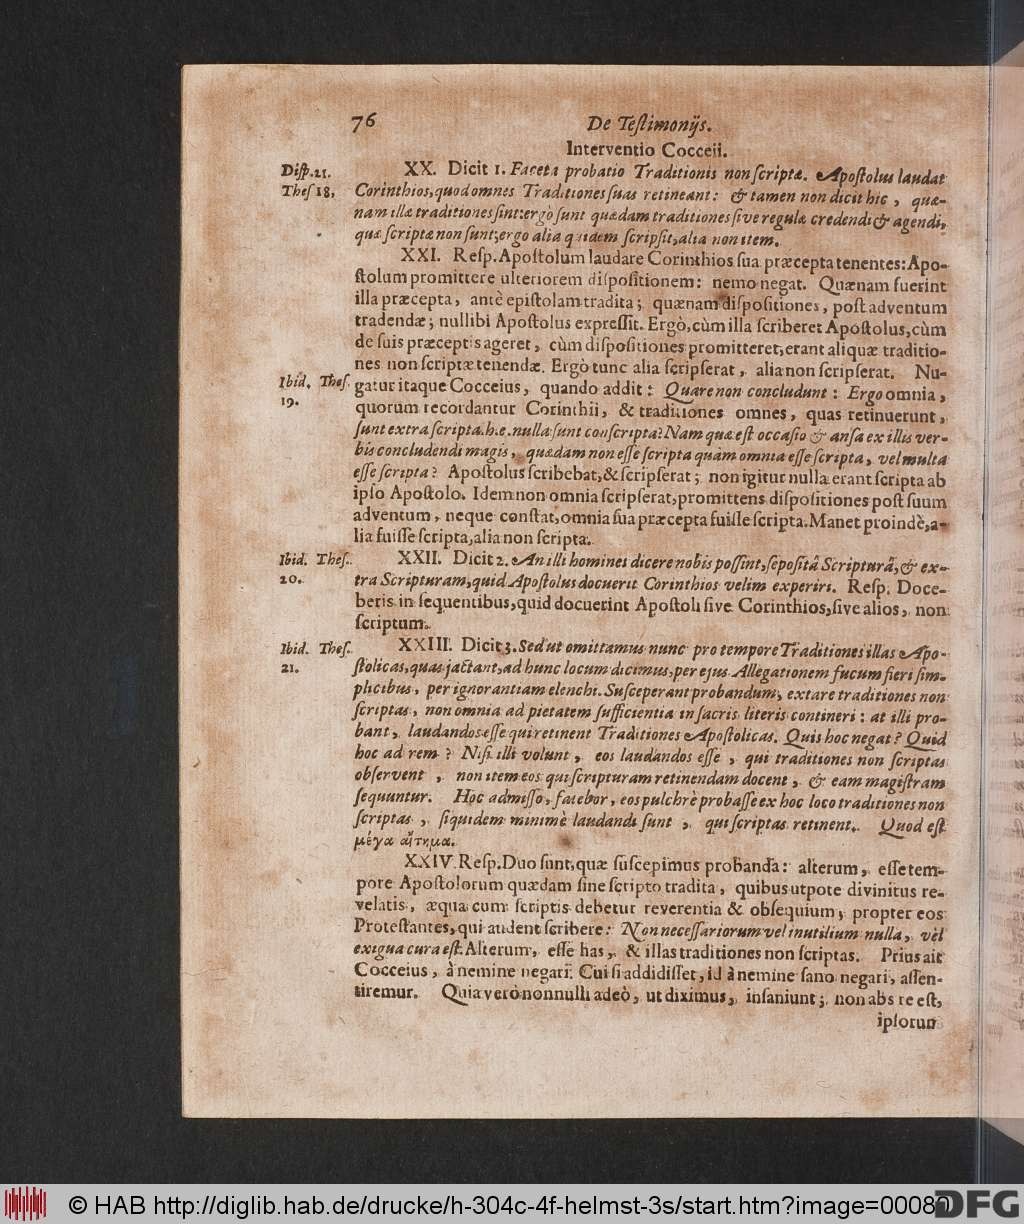 76
De Testimonijs.
Interventio Cocceii.
Disp. 21.
Thes 18,
XX. Dicit 1. Faceta probatio Traditionis non scriptæ. Apostolus laudat
Corinthios, quod omnes Traditiones suas retineant: & tamen non dicit hic, quæ-
nam illæ traditiones sint: ergò sunt quædam traditiones sive regulæ credendi & agendi,
quæ scriptæ non sunt; ergo alia quidem scripsit, alia non item.
XXI. Resp. Apostolum laudare Corinthios sua præcepta tenentes: Apo-
stolum promittere ulteriorem dispositionem: nemo negat. Quænam fuerint
illa præcepta, antè epistolam tradita; quænam dispositiones, post adventum
tradendæ; nullibi Apostolus expressit. Ergò, cùm illa scriberet Apostolus, cùm
de suis præceptis ageret, cùm dispositiones promitteret, erant aliquæ traditio-
nes non scriptæ tenendæ. Ergò tunc alia scripserat, alia non scripserat. Nu-
Ibid. Thes.
19.
gatur itaque Cocceius, quando addit: Quare non concludunt: Ergo omnia,
quorum recordantur Corinthii, & traditiones omnes, quas retinuerunt,
sunt extra scripta. h. e. nulla sunt conscripta? Nam quæ est occasio & ansa ex illis ver-
bis concludendi magis, quædam non esse scripta quàm omnia esse scripta, vel multa
esse scripta? Apostolus scribebat, & scripserat; non igitur nulla erant scripta ab
ipso Apostolo. Idem non omnia scripserat, promittens dispositiones post suum
adventum, neque constat, omnia sua præcepta fuisse scripta. Manet proindè, a-
lia fuisse scripta, alia non scripta.
Ibid. Thes.
20.
XXII. Dicit 2. An illi homines dicere nobis possint, sepositâ Scripturâ, & ex-
tra Scripturam, quid Apostolus docuerit Corinthios velim experiri. Resp. Doce-
beris in sequentibus, quid docuerint Apostoli sive Corinthios, sive alios, non
scriptum.
Ibid. Thes.
21.
XXIII. Dicit 3. Sed ut omittamus nunc pro tempore Traditiones illas Apo-
stolicas, quas jactant, ad hunc locum dicimus, per ejus Allegationem fucum fieri sim-
plicibus, per ignorantiam elenchi. Susceperant probandum, extare traditiones non
scriptas, non omnia ad pietatem sufficientia in sacris literis contineri: at illi pro-
bant, laudandos esse qui retinent Traditiones Apostolicas. Quis hoc negat? Quid
hoc ad rem? Nisi illi volunt, eos laudandos esse, qui traditiones non scriptas
observent, non item eos qui scripturam retinendam docent, & eam magistram
sequuntur. Hoc admisso, fatebor, eos pulchrè probasse ex hoc loco traditiones non
scriptas, siquidem minimè laudandi sunt, qui scriptas retinent. Quod est
μέγα αἴτημα.
XXIV Resp. Duo sunt, quæ suscepimus probanda: alterum, esse tem-
pore Apostolorum quædam sine scripto tradita, quibus utpote divinitus re-
velatis, æqua cum scriptis debetur reverentia & obsequium, propter eos
Protestantes, qui audent scribere: Non necessariorum vel inutilium nulla, vel
exigua cura est. Alterum, esse has, & illas traditiones non scriptas. Prius ait
Cocceius, à nemine negari. Cui si addidisset, id à nemine sano negari, assen-
tiremur. Quia verò nonnulli adeò, ut diximus, insaniunt; non abs re est,
ipsorum
© HAB http://diglib.hab.de/drucke/h-304c-4f-helmst-3s/start.htm?image=00080
DFG